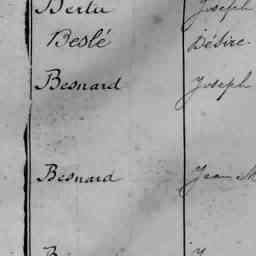 Bertu Joseph
Beslé Désiré
Besnard Joseph
Besnard Jean M